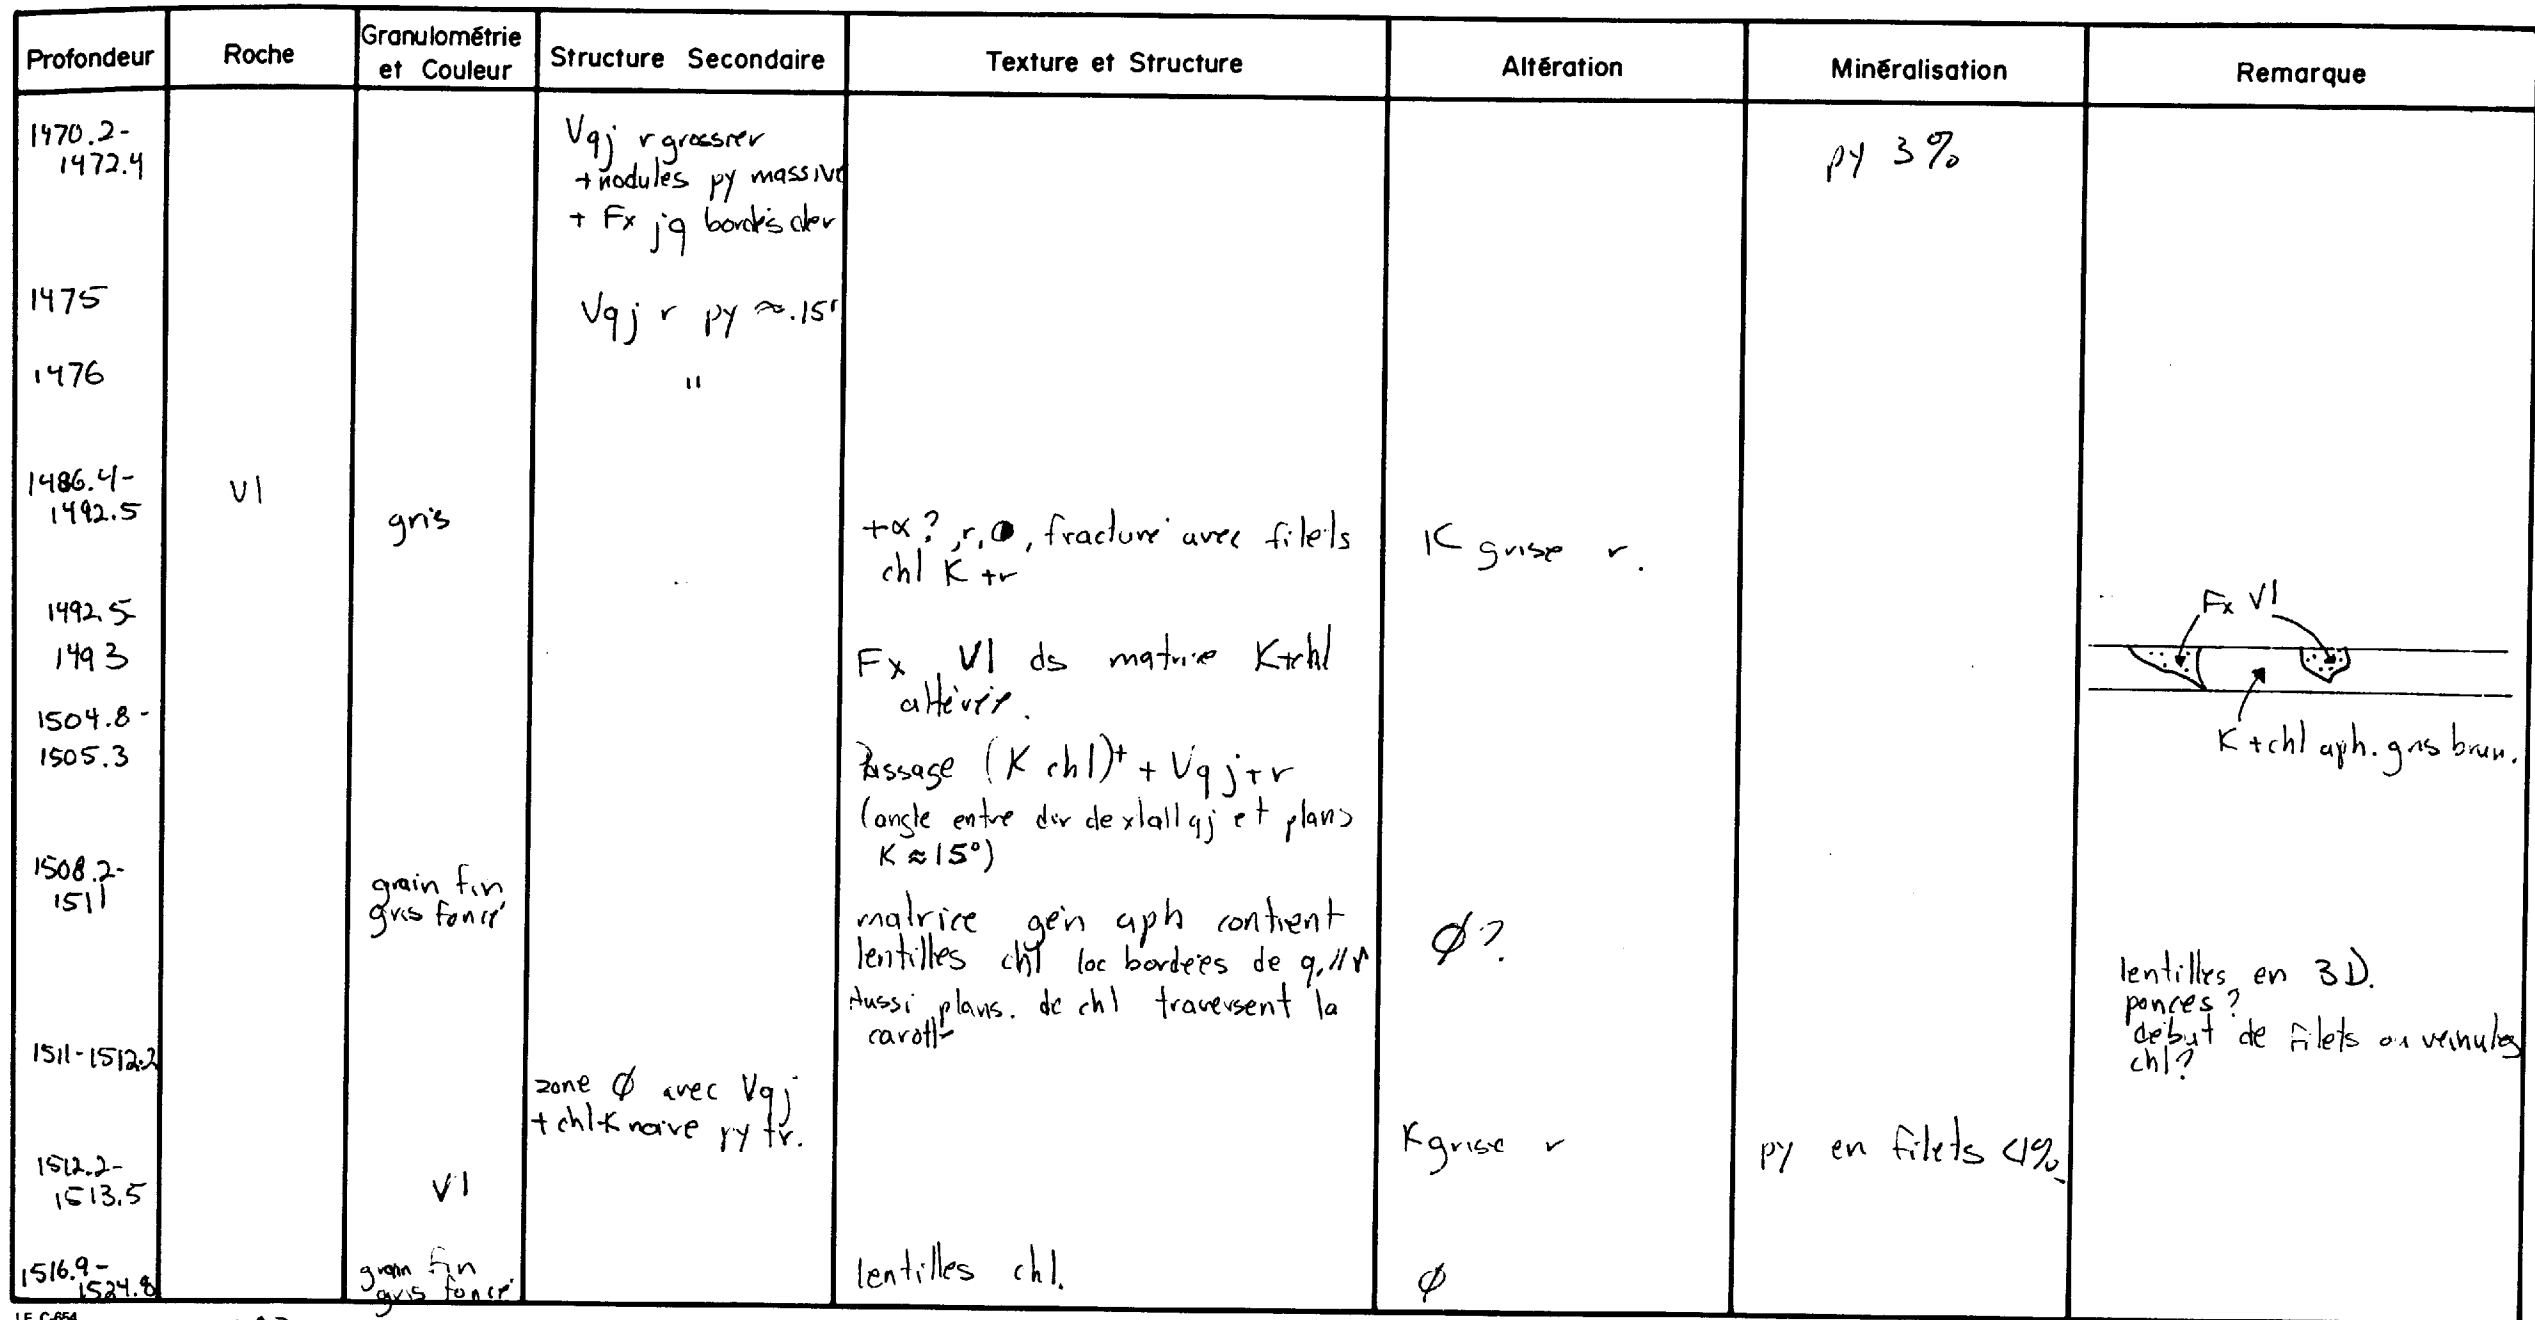 Profondeur Roche Granulométrie et Couleur Structure Secondaire Texture et Structure Altération Minéralisation Remarque
1470.2-
1472.4
Vqj r grossier
+ nodules py massive
+ Fx jq bordés de r
py 3%
1475
Vqj r py ≈.15'
1476
"
1486.4-
1492.5
V1
gris
+α?, r, ◑, fracturé avec filets
chl K +r
K grise r.
1492.5-
1493
Fx V1 ds matrice K+chl
altérée.
Fx V1
K + chl aph. gris brun.
1504.8-
1505.3
Passage (K chl)+ + Vqj+r
(angle entre dir de xlall qj et plans
K ≈ 15°)
1508.2-
1511
grain fin
gris foncé
matrice gén aph contient
lentilles chl loc bordées de q, // r
Aussi plans. de chl traversent la
carotte
Ø?
lentilles en 3D.
ponces?
début de filets ou veinules
chl?
1511-1512.2
zone Ø avec Vqj
+ chl+K noire py tr.
1512.2-
1513.5
V1
K grise r
py en filets <1%
1516.9-
1524.8
grain fin
gris foncé
lentilles chl.
Ø